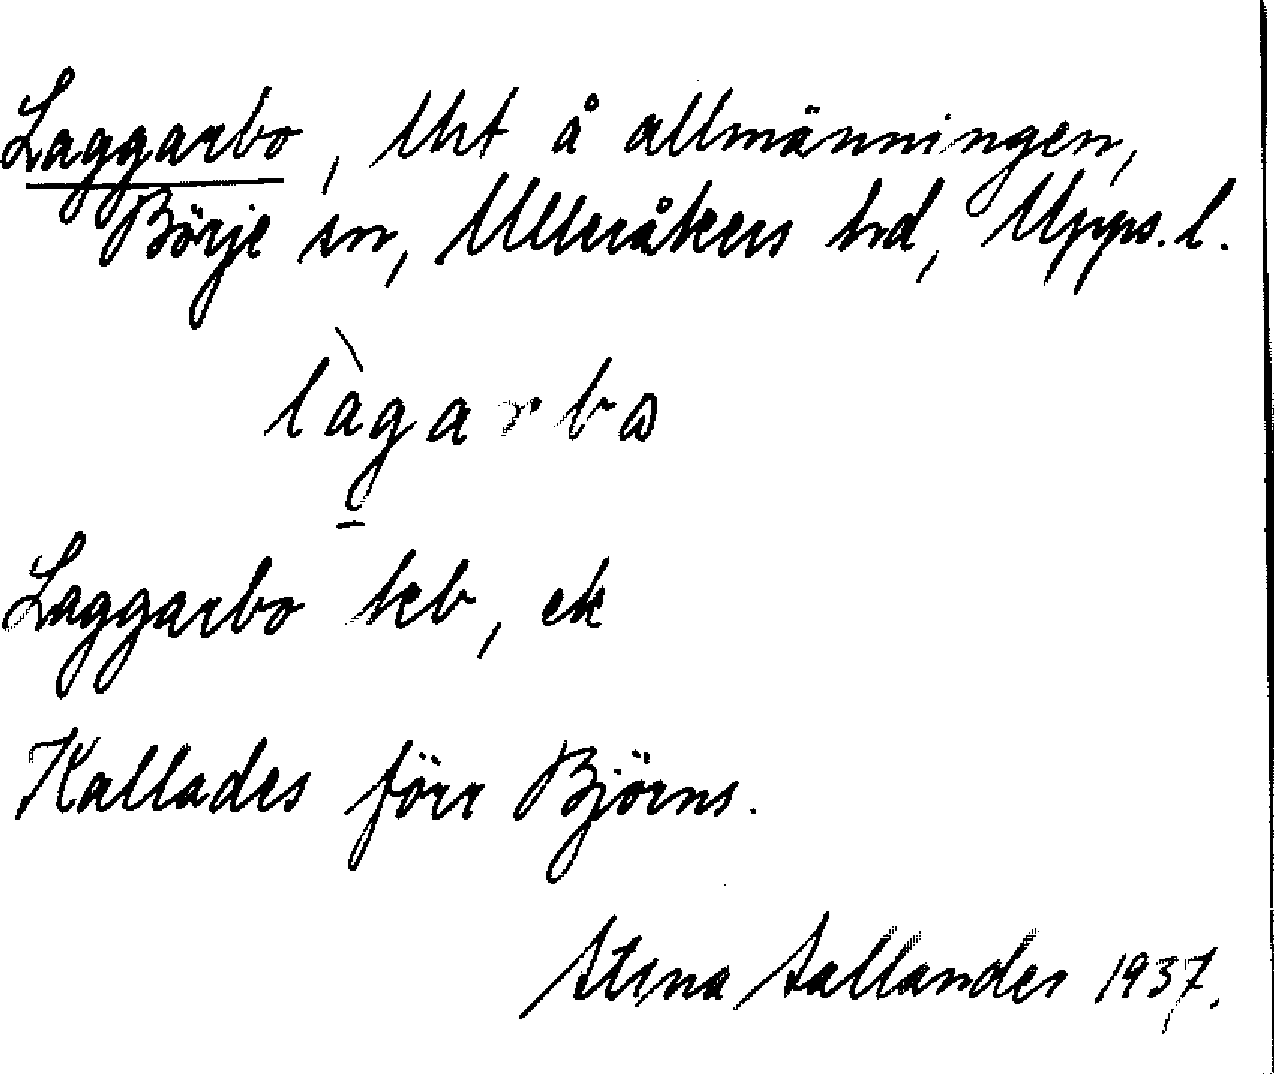 Laggarbo, Uht å allmänningen,
Börje sn, Ulleråkers hd, Upps. l.
làgarbɷ
Laggarbo kb, ek
Kallades förr Björns.
Stina Sallander 1937.